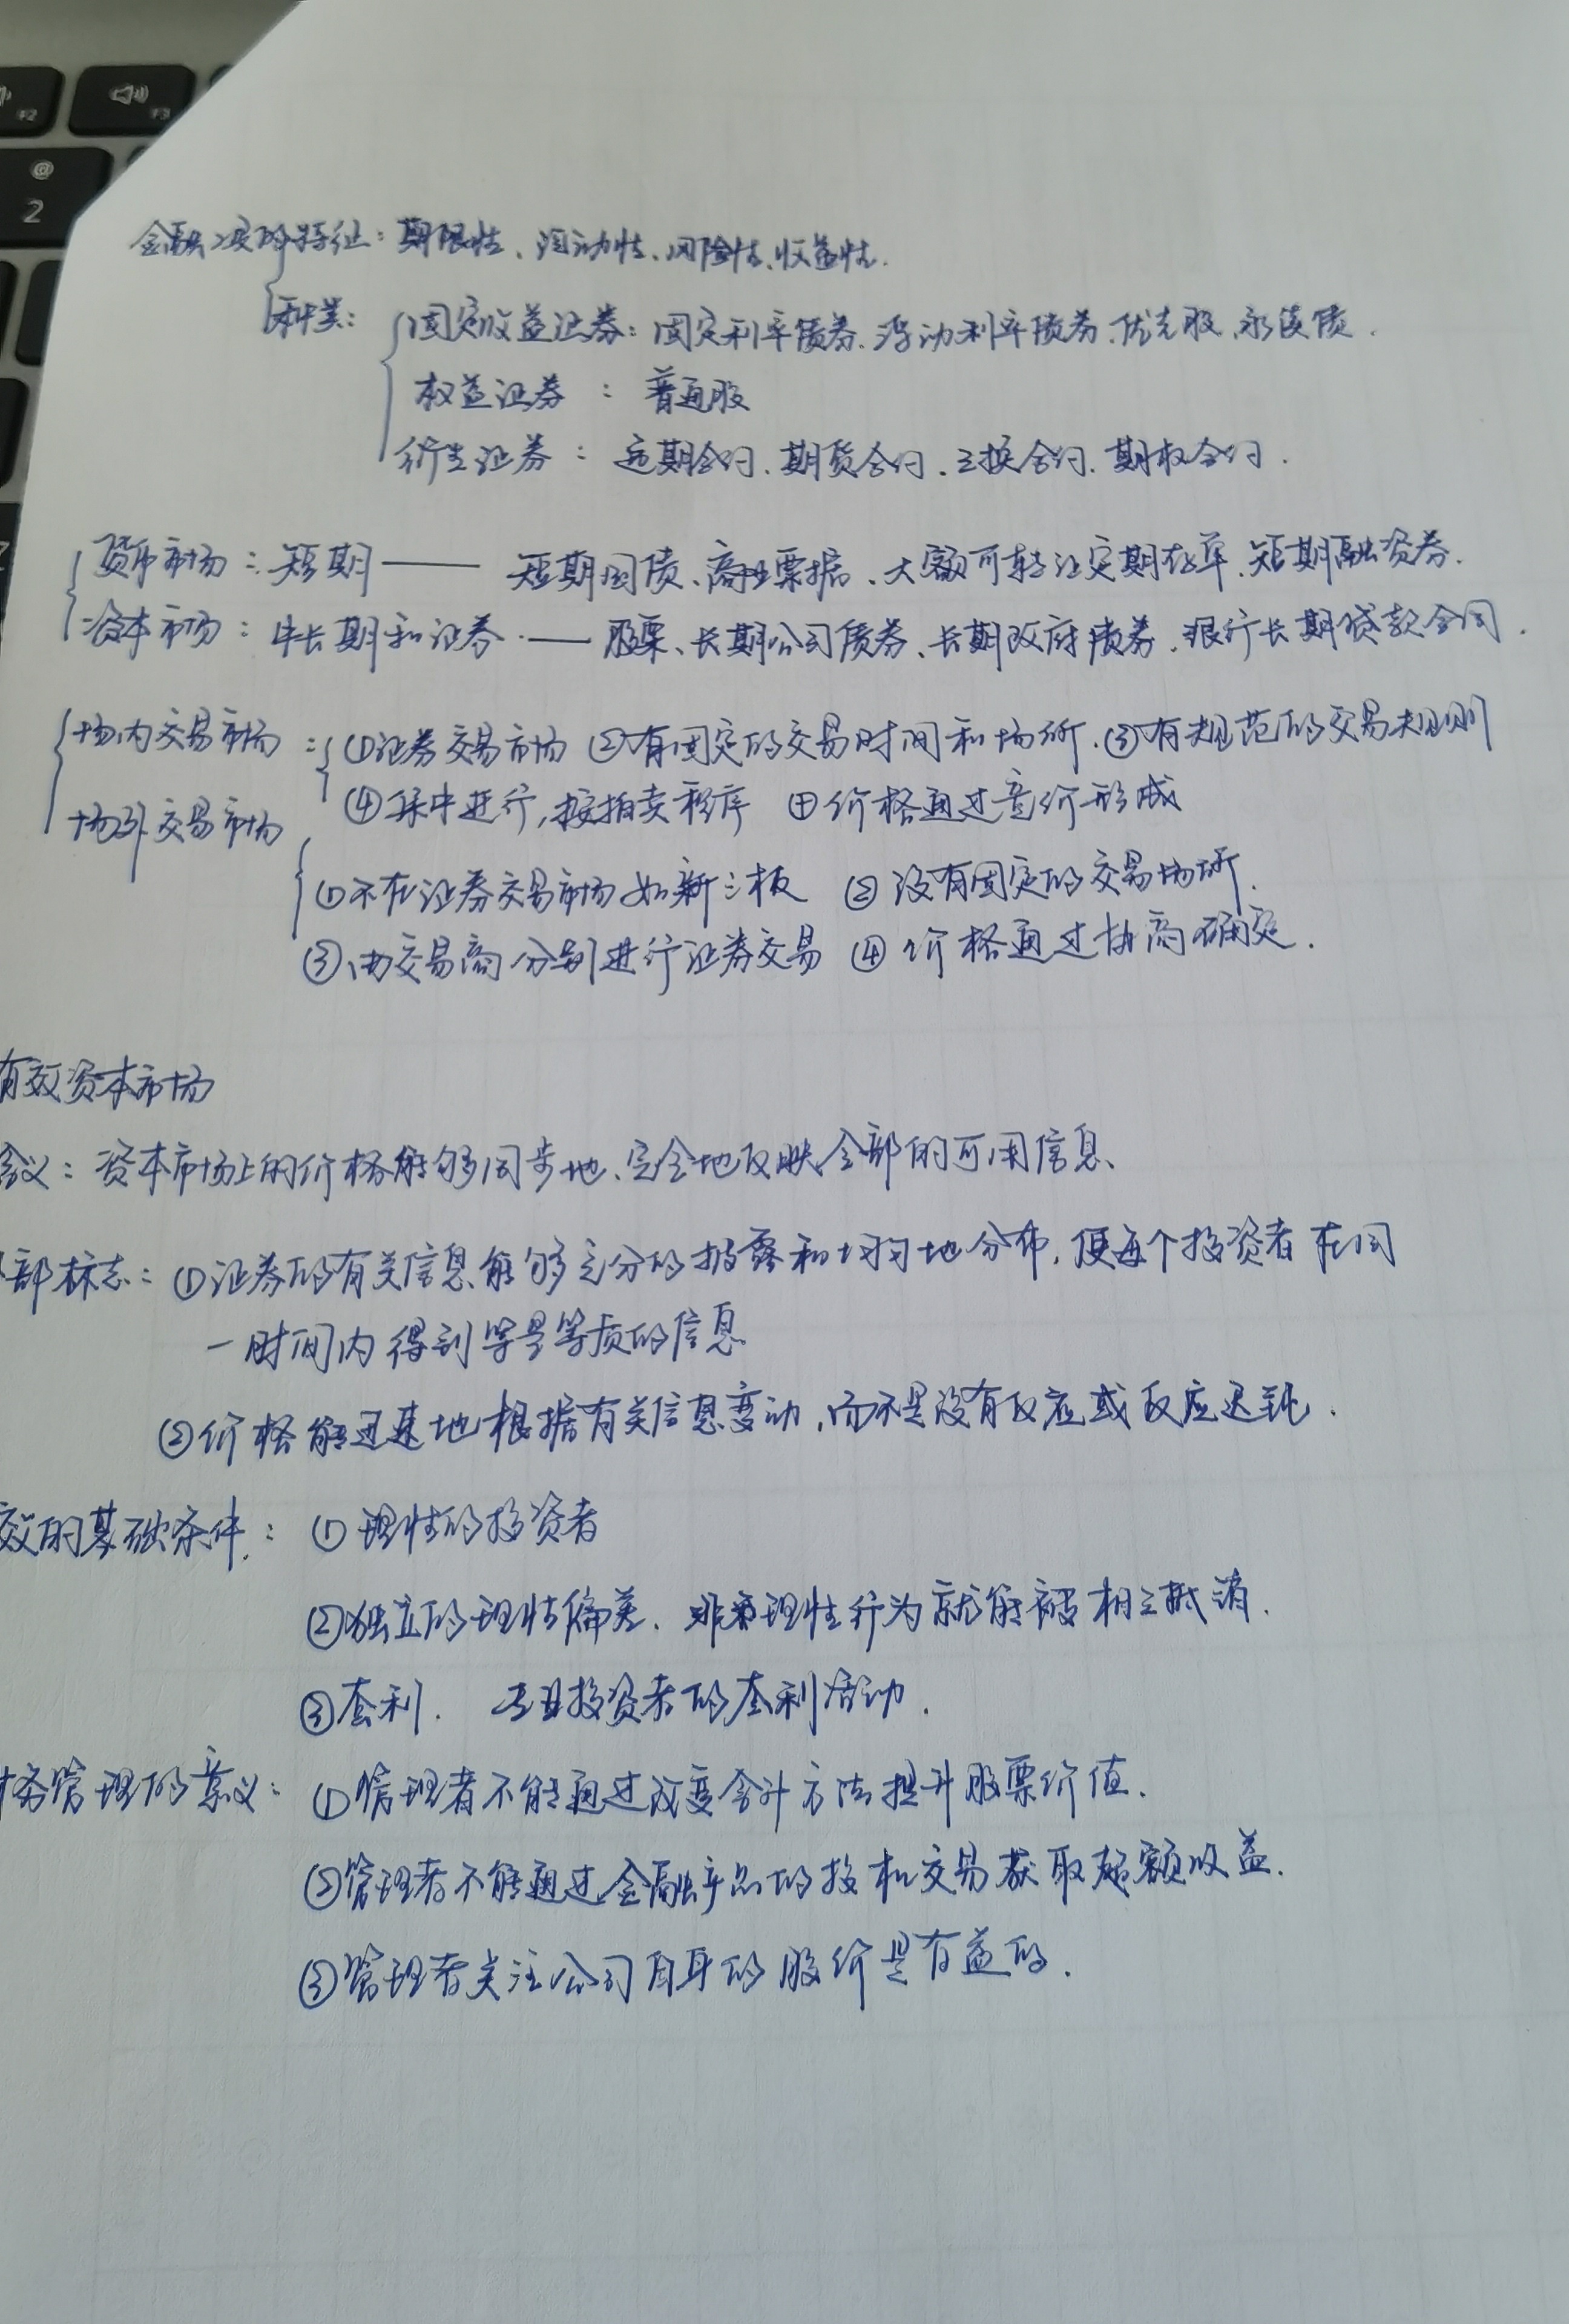 金融工具的特征：期限性、流动性、风险性、收益性.
种类：
固定收益证券：固定利率债券、浮动利率债券、优先股、永续债.
权益证券：普通股
衍生证券：远期合约、期货合约、互换合约、期权合约.
货币市场：短期—— 短期国债、商业票据、大额可转让定期存单、短期融资券.
资本市场：中长期和证券 —— 股票、长期公司债券、长期政府债券、银行长期贷款合同.
场内交易市场：①证券交易市场 ②有固定的交易时间和场所.③有规范的交易规则
④集中进行,按拍卖程序 ④价格通过竞价形成
场外交易市场
①不在证券交易市场如新三板 ②没有固定的交易场所.
③由交易商分别进行证券交易 ④价格通过协商确定.
有效资本市场
含义：资本市场上的价格能够同步地、完全地反映全部的可用信息、
部标志：①证券的有关信息能够充分的披露和均匀地分布,使每个投资者在同
一时间内得到等量等质的信息
②价格能迅速地根据有关信息变动,而不是没有反应或反应迟钝.
效的基础条件：①理性的投资者
②独立的理性偏差、非理性行为就能被相互抵消.
③套利. 专业投资者的套利活动.
务管理的意义：①管理者不能通过改变会计方法提升股票价值.
②管理者不能通过金融产品的投机交易获取超额收益.
③管理者关注公司自身的股价是有益的.